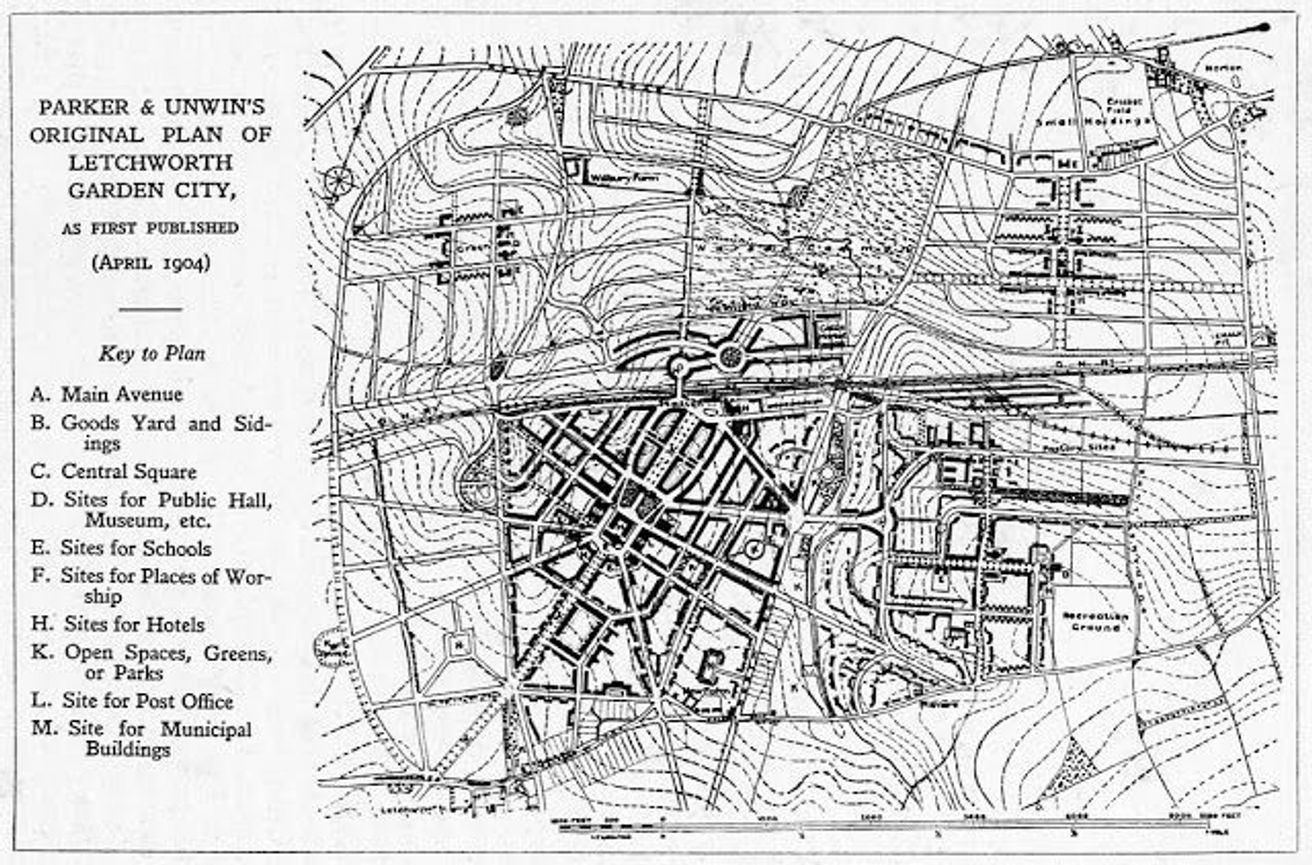 PARKER & UNWIN'S
ORIGINAL PLAN OF
LETCHWORTH
GARDEN CITY,
AS FIRST PUBLISHED
(APRIL 1904)
Key to Plan
A. Main Avenue
B. Goods Yard and Sid-
ings
C. Central Square
D. Sites for Public Hall,
Museum, etc.
E. Sites for Schools
F. Sites for Places of Wor-
ship
H. Sites for Hotels
K. Open Spaces, Greens,
or Parks
L. Site for Post Office
M. Site for Municipal
Buildings
Norton
Field
Small Holdings
Wilbury Farm
Green
Factory Sites
Recreation
Ground
Letchworth